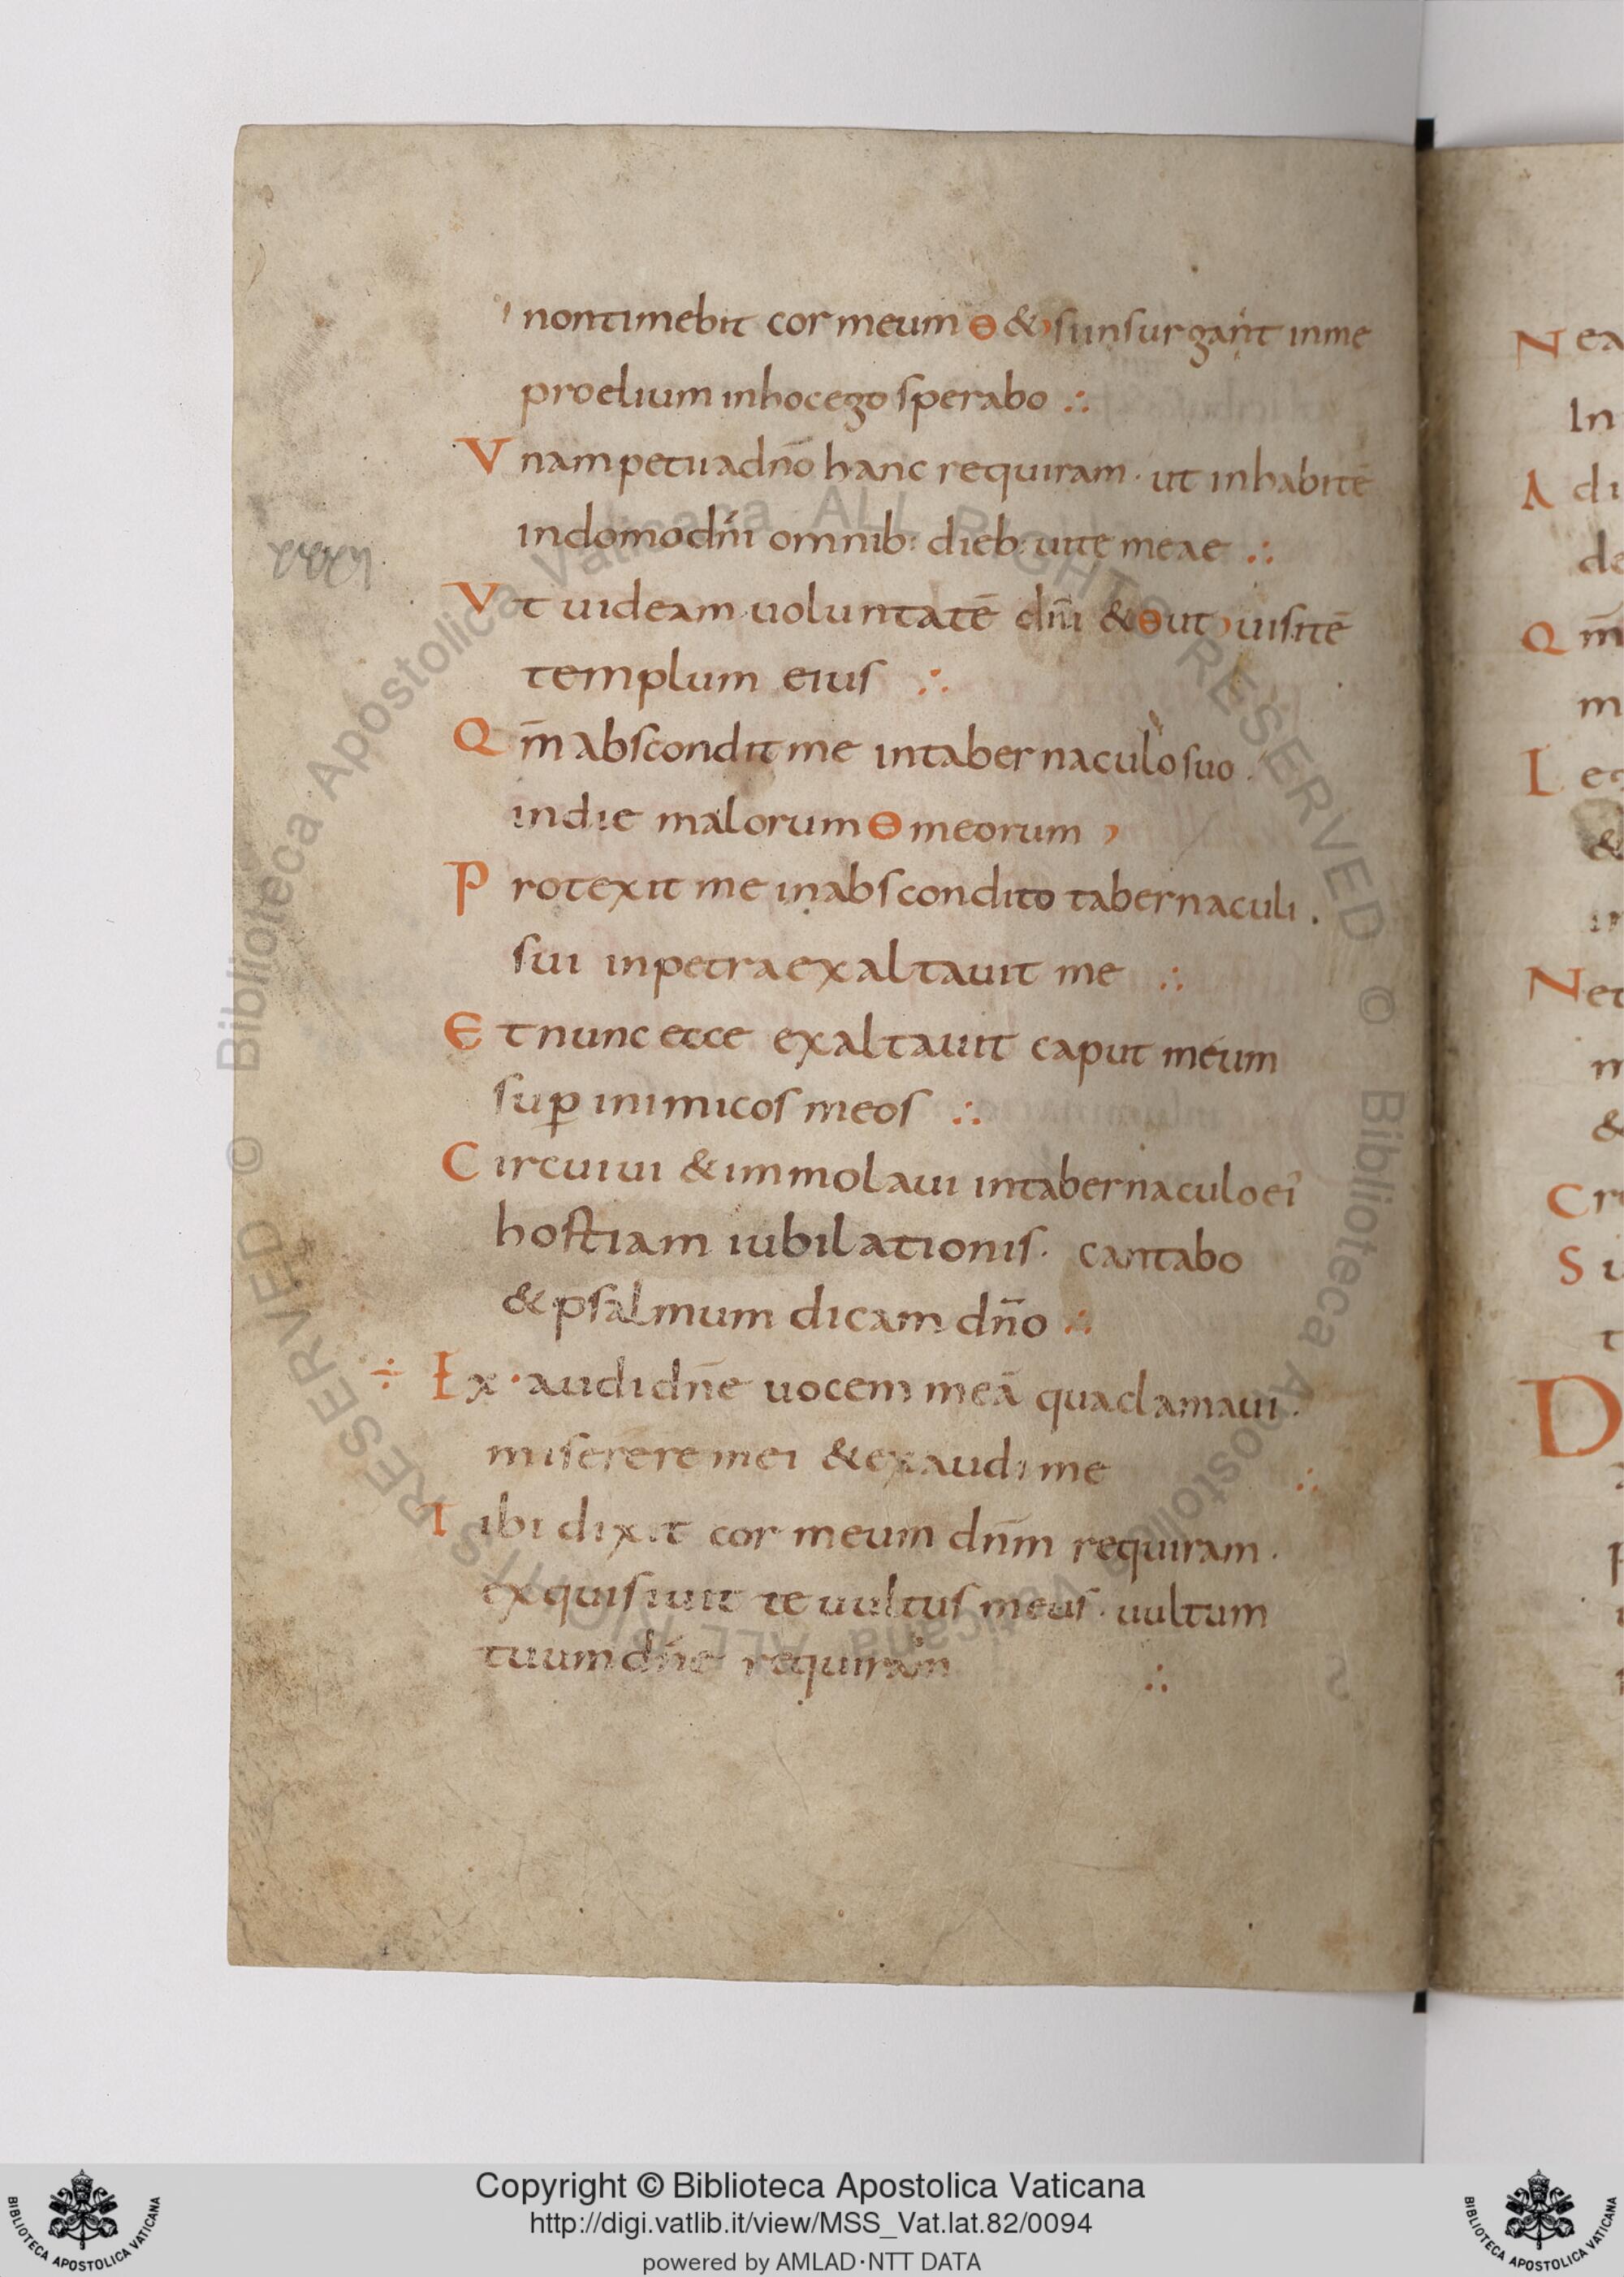 non timebit cor meum ɵ & si insurgant in me
proelium in hoc ego sperabo ∴
Vnam petii a dño hanc requiram · ut inhabitē
in domo dñi omnib: dieb: uite meae ∴
Vt uideam uoluntatē dñi & ɵ ut uisitē
templum eius ∴
Qm̄ abscondit me in tabernaculo suo ·
in die malorum ɵ meorum
Protexit me in abscondito tabernaculi ·
sui in petra exaltauit me ∴
Et nunc ecce exaltauit caput meum
sup inimicos meos ∴
Circuiui & immolaui in tabernaculo ei
hostiam iubilationis · cantabo
& psalmum dicam dño ∴
÷ Ex·audi dñe uocem meā qua clamaui ·
miserere mei & exaudi me ∴
Tibi dixit cor meum dñm requiram ·
exquisiuit te uultus meus · uultum
tuum dñe requiram ∴
Nea
In
Adi
de
Qm̄
m
L
&
in
Net
m
&
Cr
S
t
D
© Biblioteca Apostolica Vaticana ALL RIGHTS RESERVED © Biblioteca Apostolica Vaticana ALL RIGHTS RESERVED
Copyright © Biblioteca Apostolica Vaticana
http://digi.vatlib.it/view/MSS_Vat.lat.82/0094
powered by AMLAD·NTT DATA
BIBLIOTECA APOSTOLICA VATICANA
BIBLIOTECA APOSTOLICA VATICANA